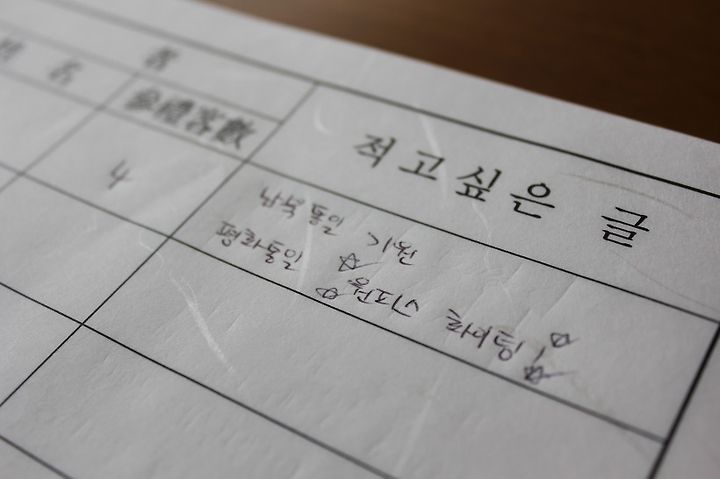 姓 名
者
參禮客數
적고싶은 글
4
남북통일 기원
평화통일 ☆
☆원피스 화이팅! ☆
☆